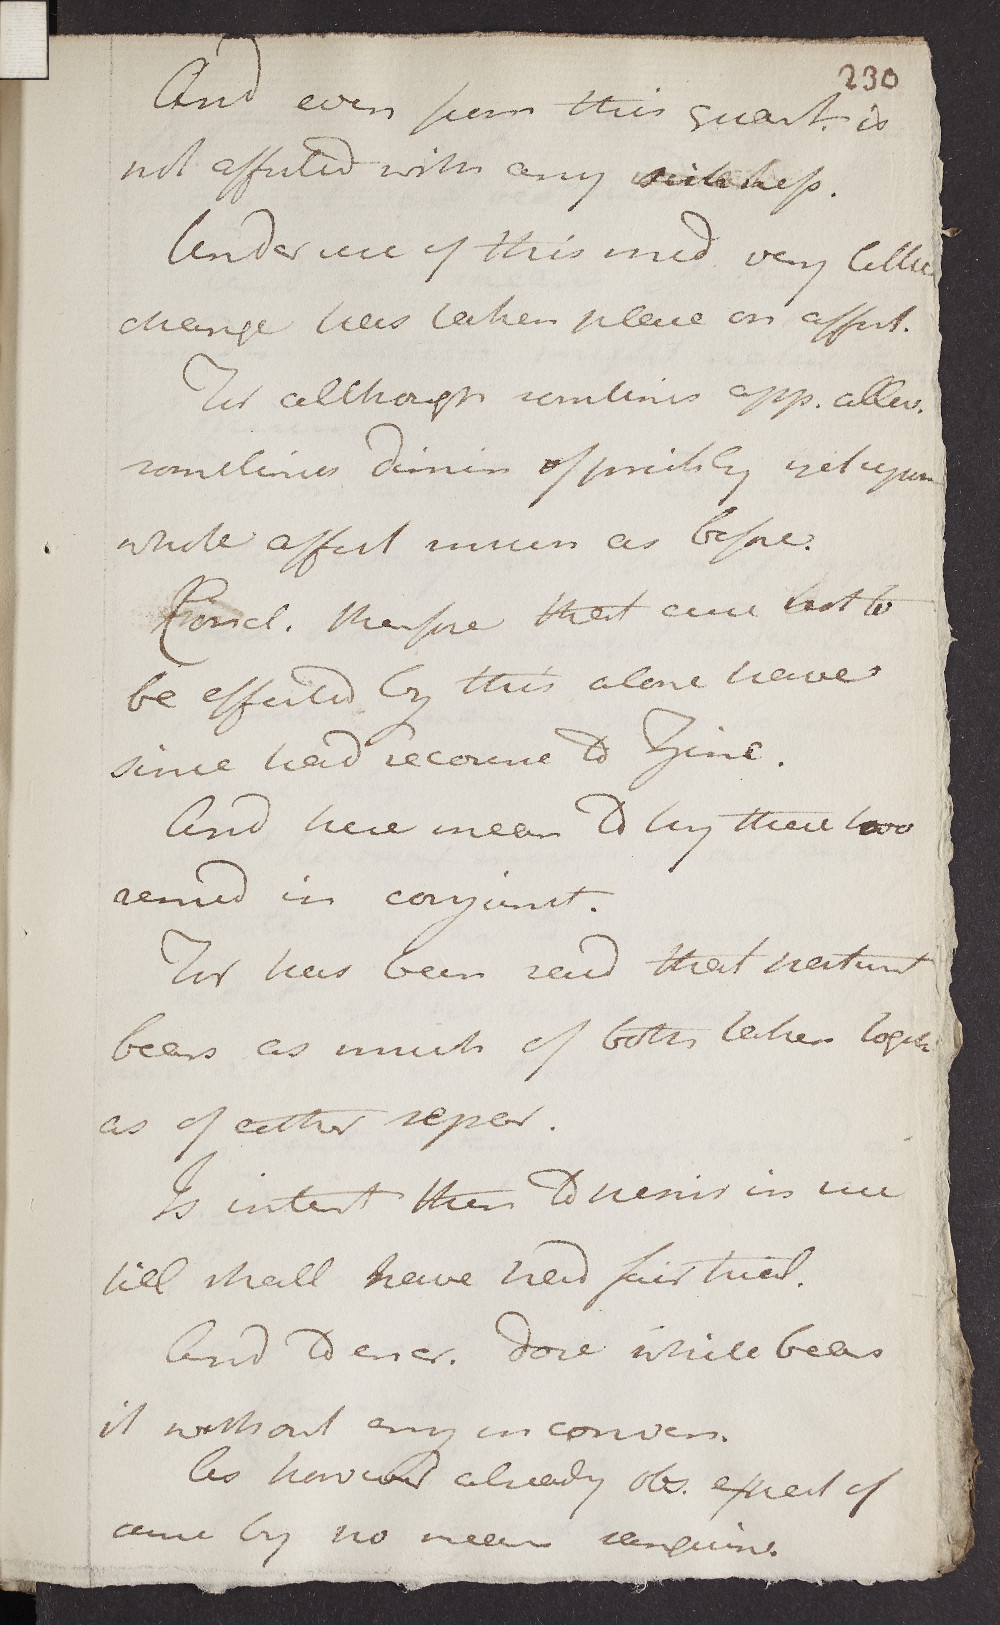 230
And even from this quant. is
not affected with any sickness.
Under use of this med very little
change has taken place on affect.
For allthough somtimes app. allev.
sometimes dimin yet upon
whole affect much as before.
Consid. therfore that cure not to
be effected by this alone have
since had recourse to Zinc.
And here mean to try these two
remed in conjunct.
For has been said that patient
bears as much of both taken togeth
as of either separ.
Is intent then to persis in use
till shall have had fair trial.
And to encr. dose while bears
it without any inconven.
As however already obs. expect of
cure by no mean sanguine.